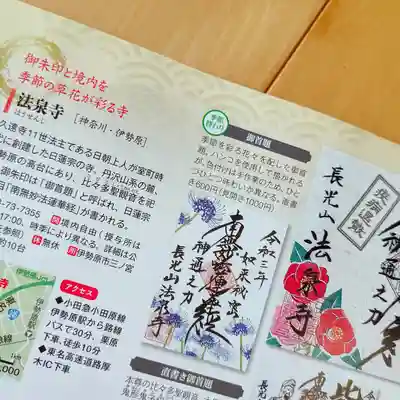 御朱印と境内を
季節の草花が彩る寺
法泉寺
ほうせんじ
[神奈川・伊勢原]
久遠寺11世法主である日朝上人が室町時
に創建した日蓮宗の寺。丹沢山系の麓、
勢原の高台にあり、比々多聖観音を祀
御朱印は「御首題」と呼ばれ、日蓮宗
「南無妙法蓮華経」が書かれる。
-73-7355
境内自由(授与所は
17:00、時季により異なる。詳細は公
を参照)
無休
伊勢原市三ノ宮
約10台
アクセス
◆小田急小田原線
伊勢原駅から路線
バスで30分、栗原
下車、徒歩10分
◆東名高速道路厚
木IC下車
伊勢原駅
季節
替わり
御首題
季節を彩る花々を配した御首
題。ハンコを使用して描かれる
が、色付けは手作業のため、ひと
つひとつ味わいが異なる。直書
き600円(見開き1000円)
令和二年
如来秘密
南無妙法蓮華経
神通之力
長光山法泉寺
長光山
法泉寺
神通之力
直書き御首題
本尊の比々多聖観音